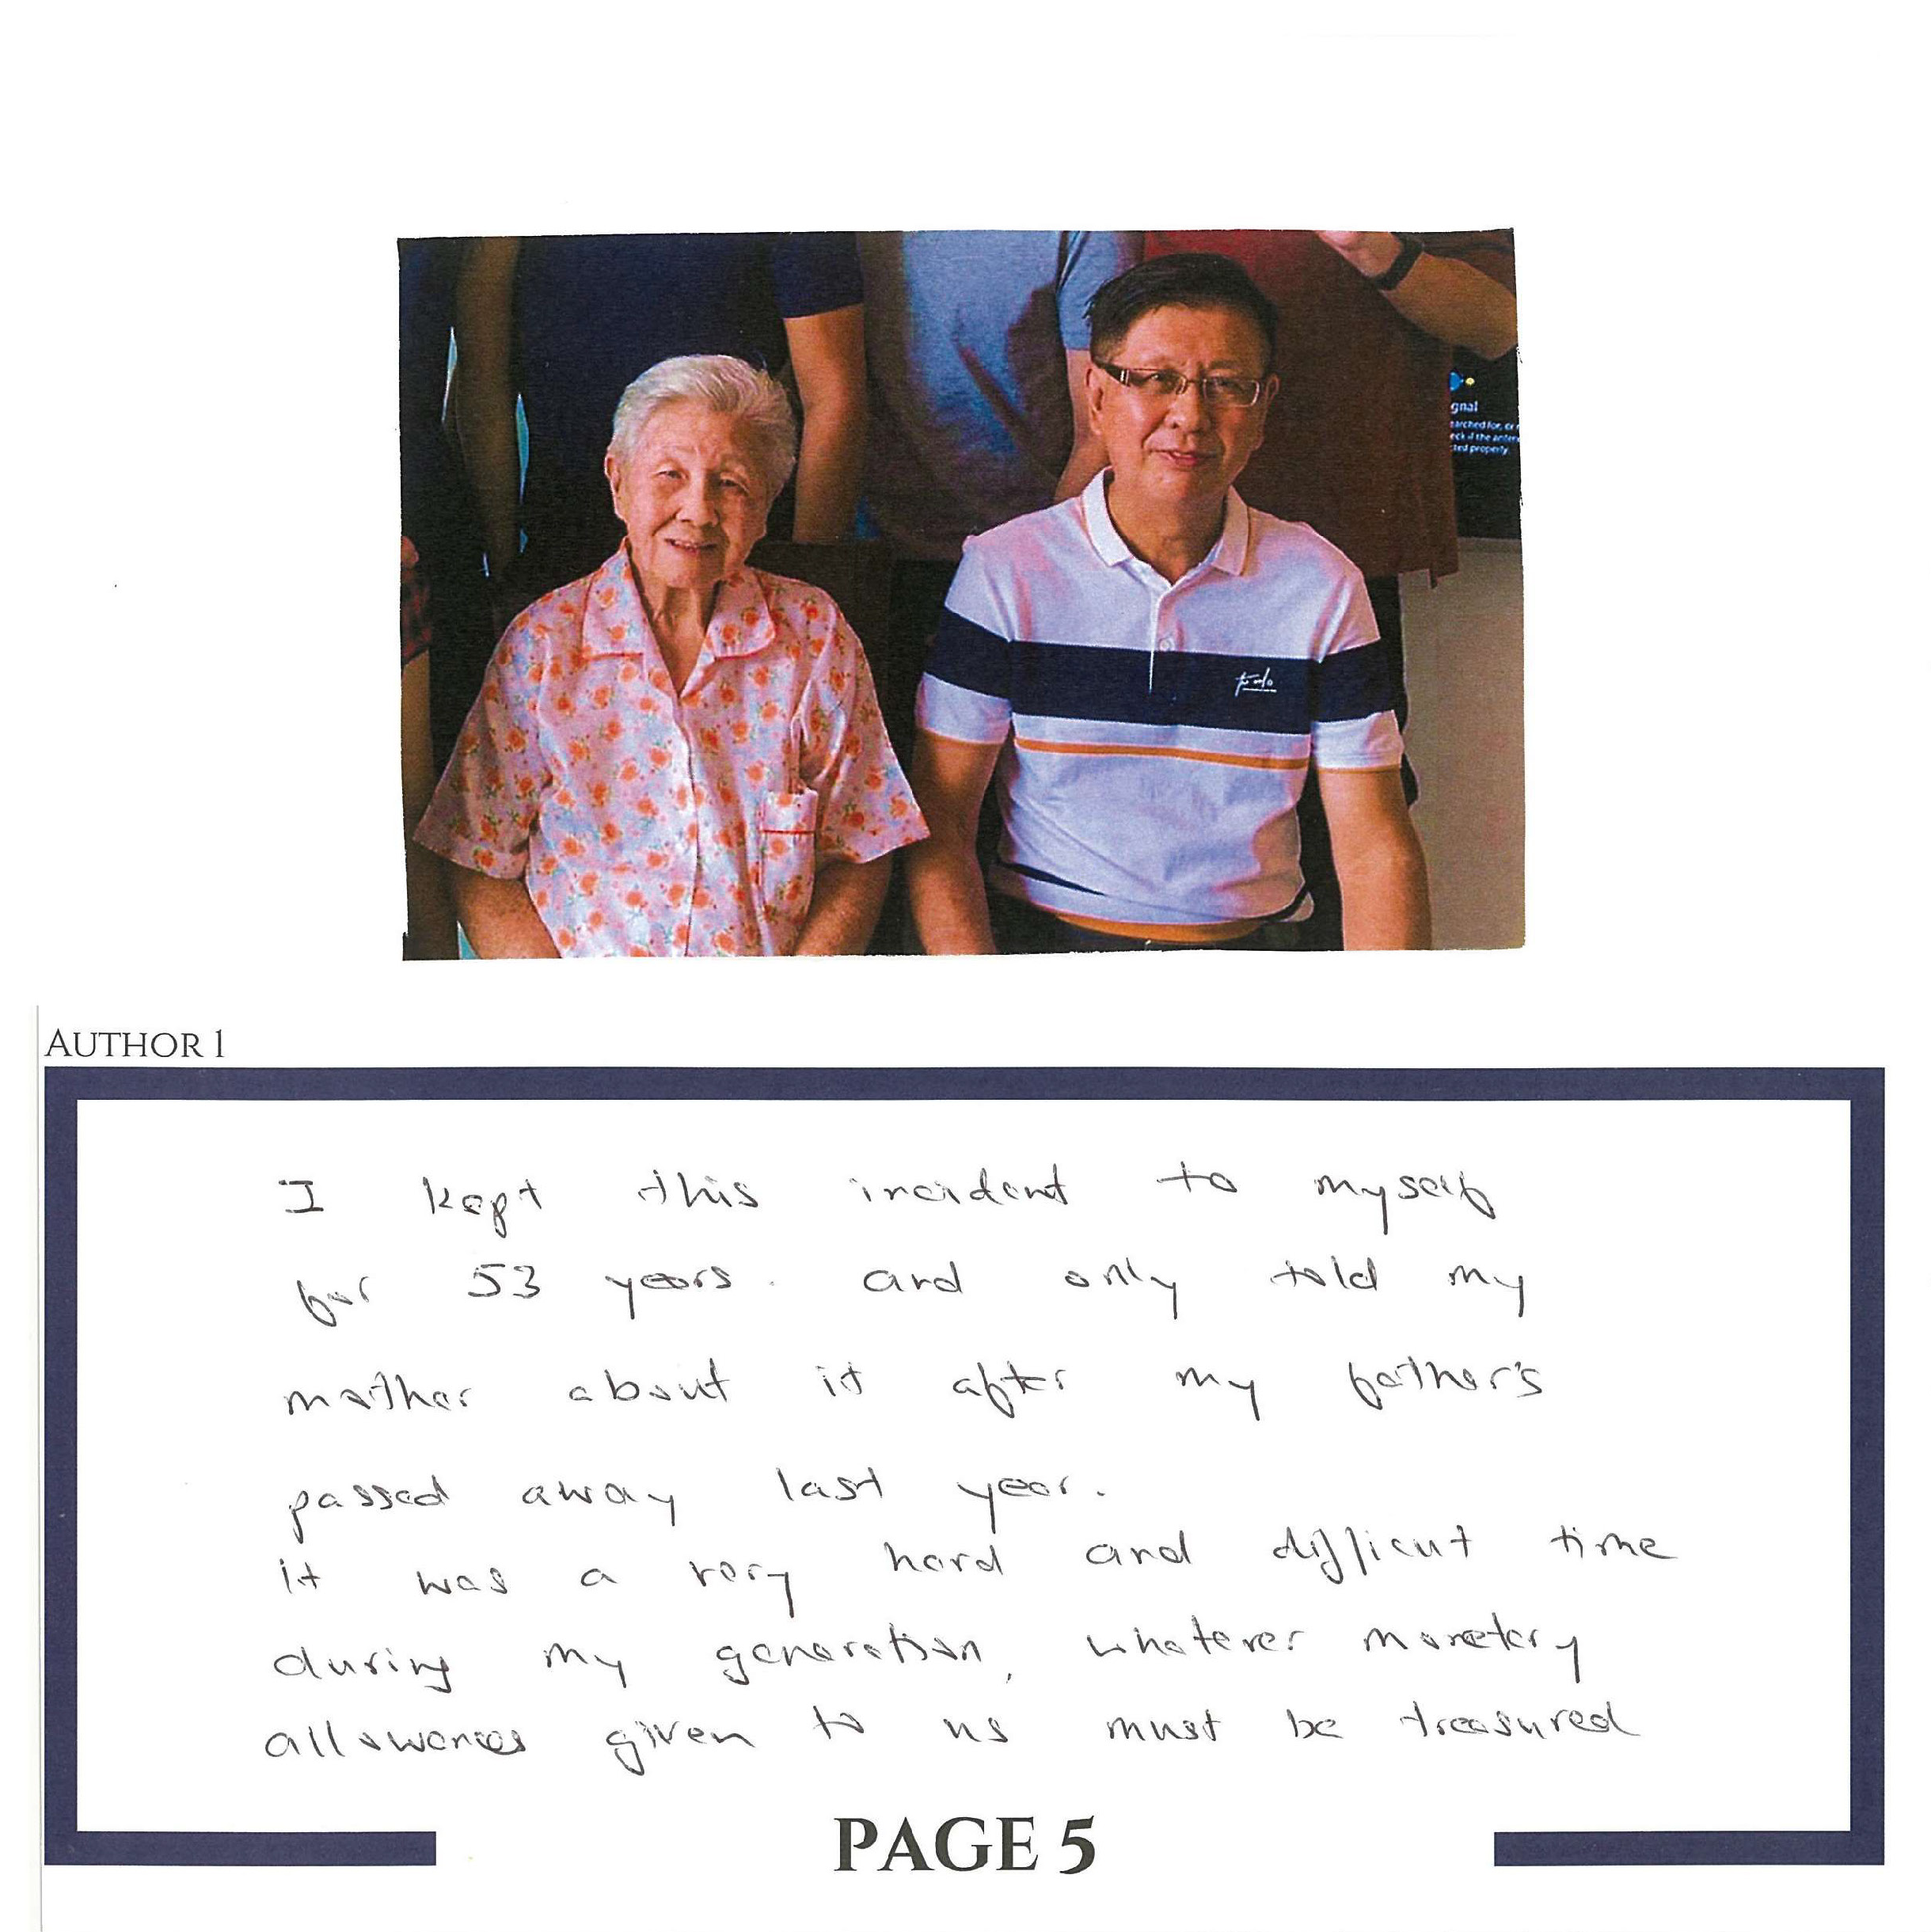 gnal
earched for, or
eck if the anten
cted property.
AUTHOR 1
I kept this incident to myself
for 53 years. and only told my
mother about it after my father's
passed away last year.
it was a very hard and difficut time
during my generation, whatever monetary
allowances given to us must be treasured
PAGE 5